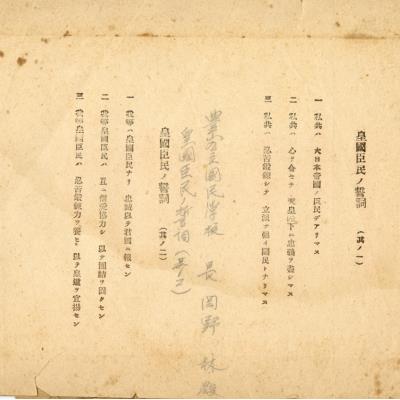 皇國臣民ノ誓詞　（其ノ一）
一　私共ハ　大日本帝國ノ臣民デアリマス
二　私共ハ　心ヲ合セテ　天皇陛下ニ忠義ヲ盡シマス
三　私共ハ　忍苦鍛錬シテ　立派ナ強イ國民トナリマス
國民学校　長　岡野
皇國臣民ノ誓詞（其ノ二）
皇國臣民ノ誓詞　（其ノ二）
一　我等ハ皇國臣民ナリ　忠誠以テ君國ニ報セン
二　我等皇國臣民ハ　互ニ信愛協力シ　以テ團結ヲ固クセン
三　我等皇國臣民ハ　忍苦鍛錬力ヲ養ヒ　以テ皇道ヲ宣揚セン